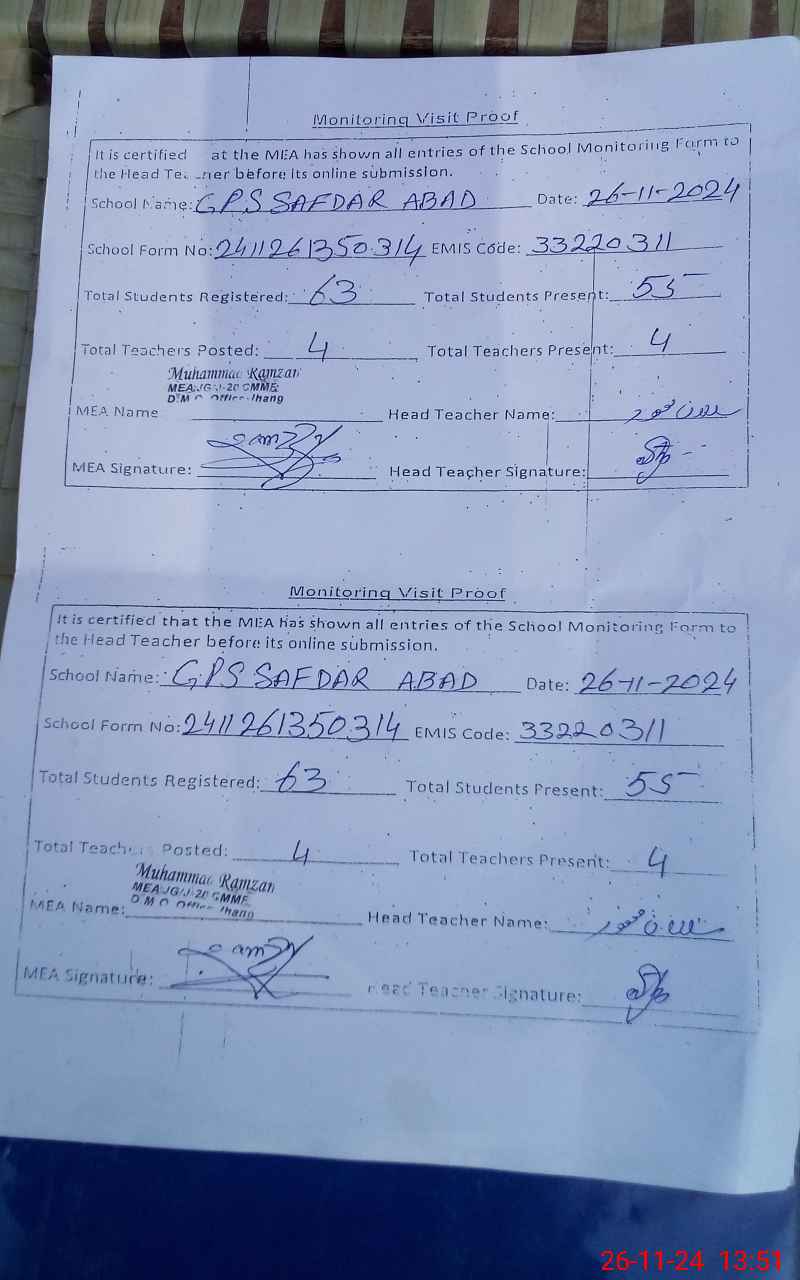 Monitoring Visit Proof
It is certified at the MEA has shown all entries of the School Monitoring Form to
the Head Teacher before its online submission.
School Name: GPS SAFDAR ABAD Date: 26-11-2024
School Form No: 2411261350314 EMIS Code: 33220311
Total Students Registered: 63 Total Students Present: 55
Total Teachers Posted: 4 Total Teachers Present: 4
Muhammad Ramzan
MEA
Office Jhang
MEA Name Head Teacher Name:
MEA Signature: Head Teacher Signature:
Monitoring Visit Proof
It is certified that the MEA has shown all entries of the School Monitoring Form to
the Head Teacher before its online submission.
School Name: GPS SAFDAR ABAD Date: 26-11-2024
School Form No: 2411261350314 EMIS Code: 33220311
Total Students Registered: 63 Total Students Present: 55
Total Teachers Posted: 4 Total Teachers Present: 4
Muhammad Ramzan
MEA
MEA Name: Head Teacher Name:
MEA Signature: Head Teacher Signature:
26-11-24 13:51